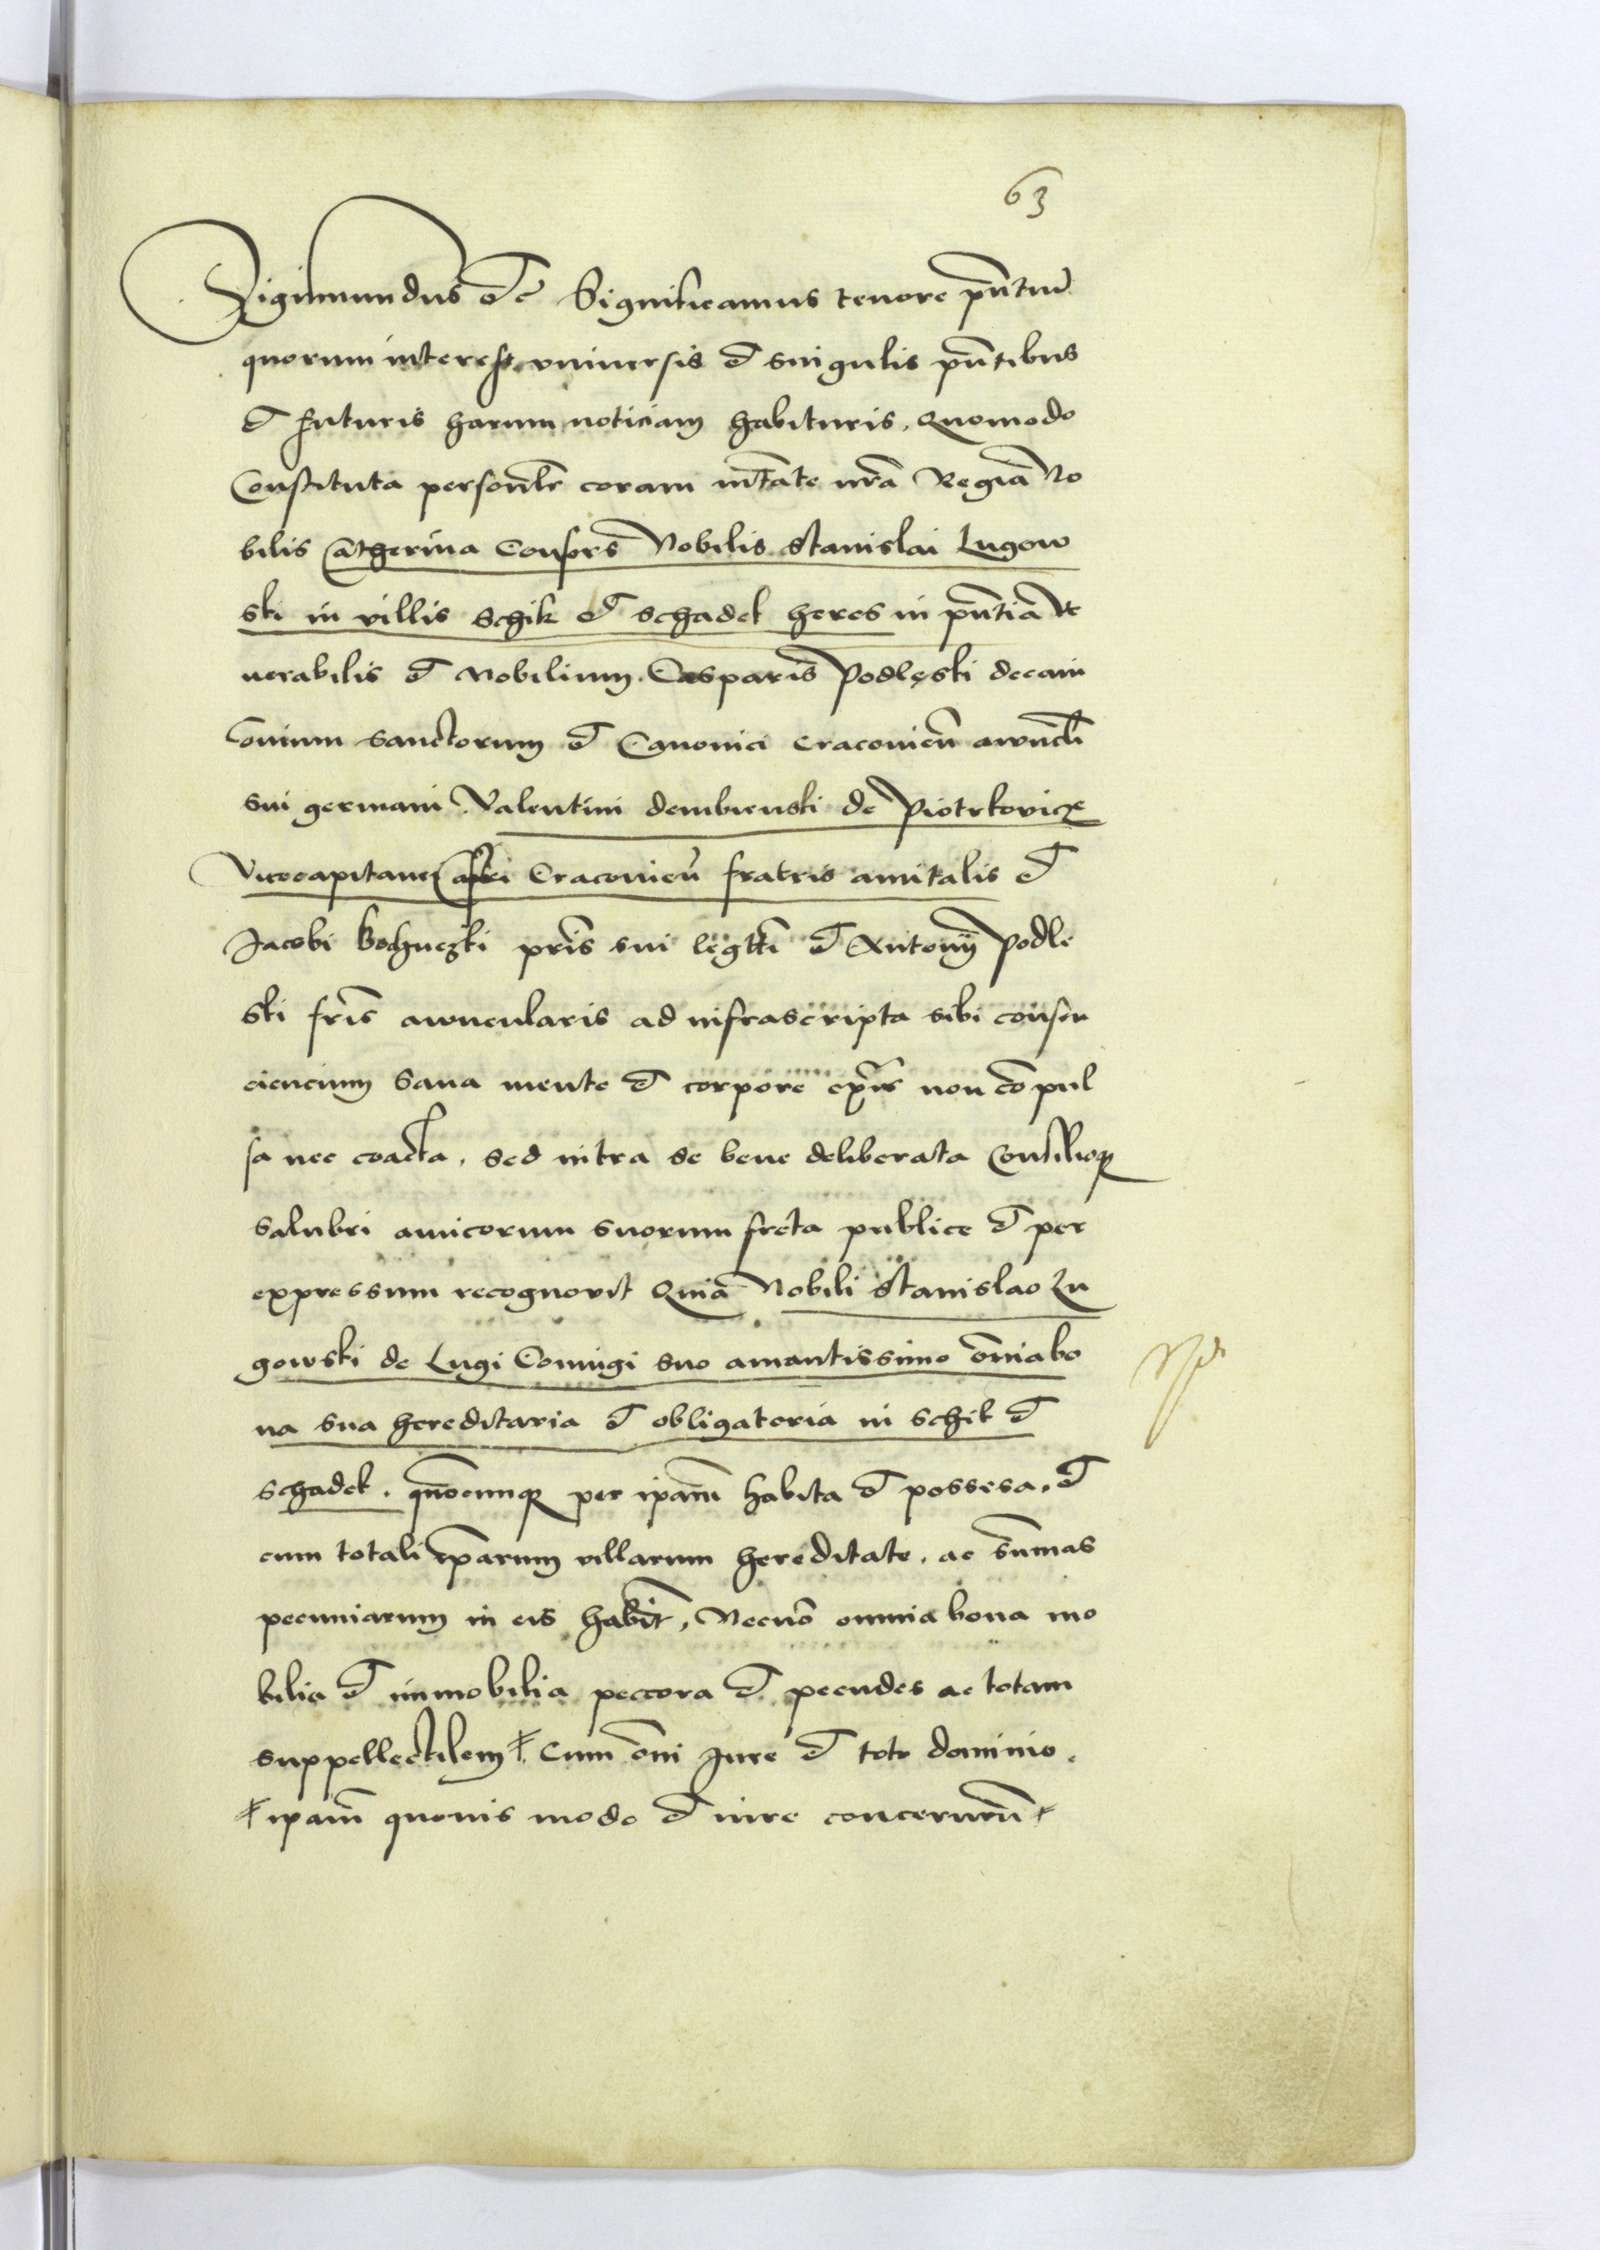 63
Sigismundus etc Significamus tenore pñtium
quorum interest vniuersis et singulis pñtibus
et futuris harum noticiam habituris. Quomodo
Constituta personlr coram mtate nra Regia No
bilis Catherina Consors Nobilis Stanislai Lugow
ski in villis Schik et Schadek heres in pñtia ve
nerabilis et Nobilium Casparis Podlęski decani
Omnium Sanctorum et Canonici Cracovieñ awncli
sui germani Valentini dembienski de Piotrkovicze
Vicecapitanei Castri Cracovieñ fratris amitalis et
Jacobi Bochnezki pris sui legtti et Antonij Podle
ski fris awncularis ad infrascripta sibi consen
ciencium Sana mente et corpore exñs non compul
sa nec coacta. sed intra se bene deliberata Consilioq
salubri amicorum suorum freta publice et per
expressum recognovit Quia Nobili Stanislao Lu
gowski de Lugi Coniugi suo amantissimo omnia bo
na sua hereditaria et obligatoria in Schik et
Schadek. quocunque per ipam habita et possessa. et
cum totali iparum villarum hereditate. ac summas
pecuniarum in eis habit. Necno omnia bona mo
bilia et immobilia peccora et pecudes ac totam
suppellectilem ⸸. Cum omi Jure et toto dominio.
⸸ ipam quouis modo et iure concernen ⸸